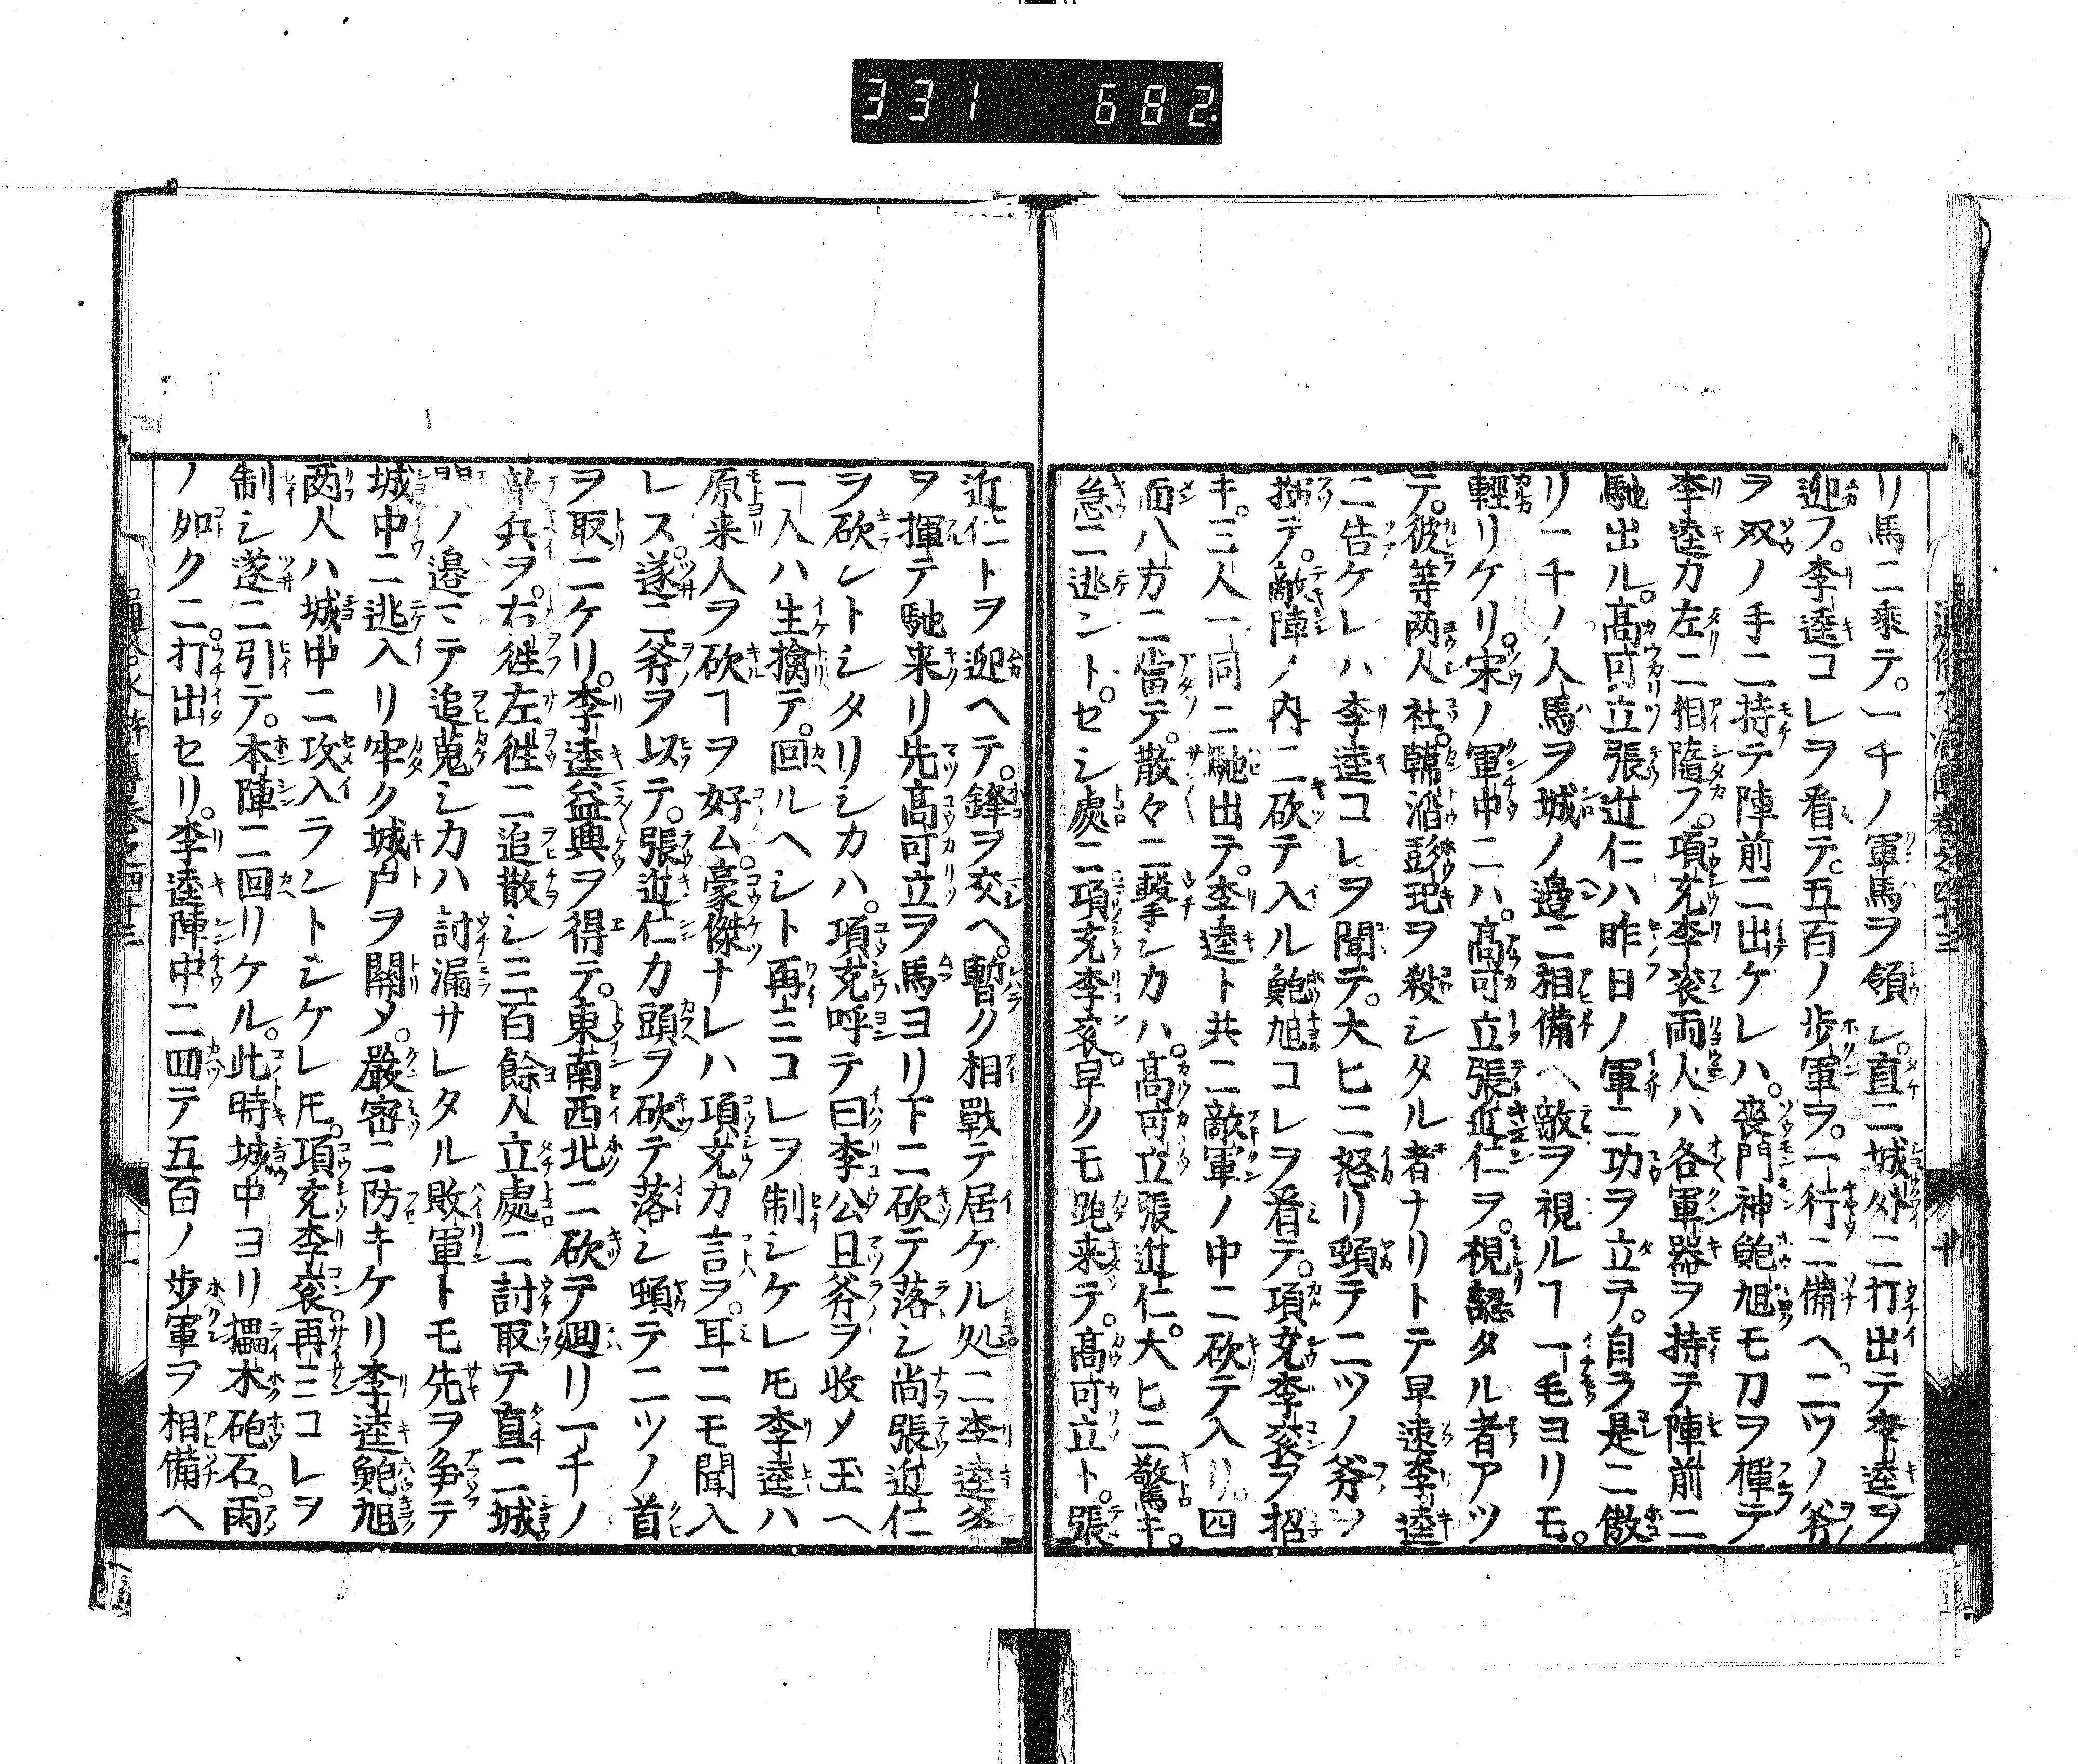 331 682
リ馬ニ乘テ。一千ノ軍馬ヲ領シ。直ニ城外ニ打出テ李逵ヲ
迎フ。李逵コレヲ看テ。五百ノ歩軍ヲ。一行ニ備ヘ。二ツノ斧
ヲ双ノ手ニ持テ陣前ニ出ケレハ。喪門神鮑旭モ刀ヲ揮テ
李逵カ左ニ相隨フ。項充李袞両人ハ各軍器ヲ持テ陣前ニ
馳出ル。髙可立張近仁ハ昨日ノ軍ニ功ヲ立テ。自ラ是ニ傲
リ一千ノ人馬ヲ城ノ邉ニ相備ヘ敵ヲ視ルヿ一毛ヨリモ。
輕リケリ。宋ノ軍中ニハ。髙可立張近仁ヲ。視認タル者アツ
テ。彼等両人社。韓滔彭玘ヲ殺シタル者ナリトテ早速李逵
ニ告ケレハ李逵コレヲ聞テ。大ヒニ怒リ頓テ二ツノ斧ヲ
揣テ。敵陣ノ内ニ砍テ入ル鮑旭コレヲ看テ。項充李袞ヲ招
キ。三人一同ニ馳出テ。李逵ト共ニ敵軍ノ中ニ砍テ入リ。四
面八方ニ當テ。散々ニ擊シカハ。髙可立張近仁。大ヒニ驚キ。
急ニ逃ント。セシ處ニ項充李袞。早クモ跑来テ。髙可立ト。張
近仁トヲ迎ヘテ。鋒ヲ交ヘ。暫ク相戰テ居ケル処ニ李逵斧
ヲ揮テ馳来リ先髙可立ヲ馬ヨリ下ニ砍テ落シ尚張近仁
ヲ砍レトシタリシカハ。項充呼テ曰李公且斧ヲ收メ玉ヘ
一人ハ生擒テ。回ルヘシト再三コレヲ制シケレ𪜈李逵ハ
原来人ヲ砍ヿヲ好ム。豪傑ナレハ項充カ言ヲ。耳ニモ聞入
レス。遂ニ斧ヲ以テ。張近仁カ頭ヲ砍テ落シ頓テ二ツノ首
ヲ取ニケリ。李逵益興ヲ得テ。東南西北ニ砍テ廻リ一千ノ
敵兵ヲ。右徃左徃ニ追散シ三百餘人立處ニ討取テ直ニ城
ノ邉マテ追蒐シカハ討漏サレタル敗軍トモ先ヲ争テ
城中ニ逃入リ牢ク城戸ヲ關メ。嚴密ニ防キケリ李逵鮑旭
両人ハ城中ニ攻入ラントシケレ𪜈。項充李袞再三コレヲ
制シ遂ニ引テ。本陣ニ回リケル。此時城中ヨリ擂木砲石。雨
ノ如クニ。打出セリ。李逵陣中ニ皈テ五百ノ歩軍ヲ相備ヘ